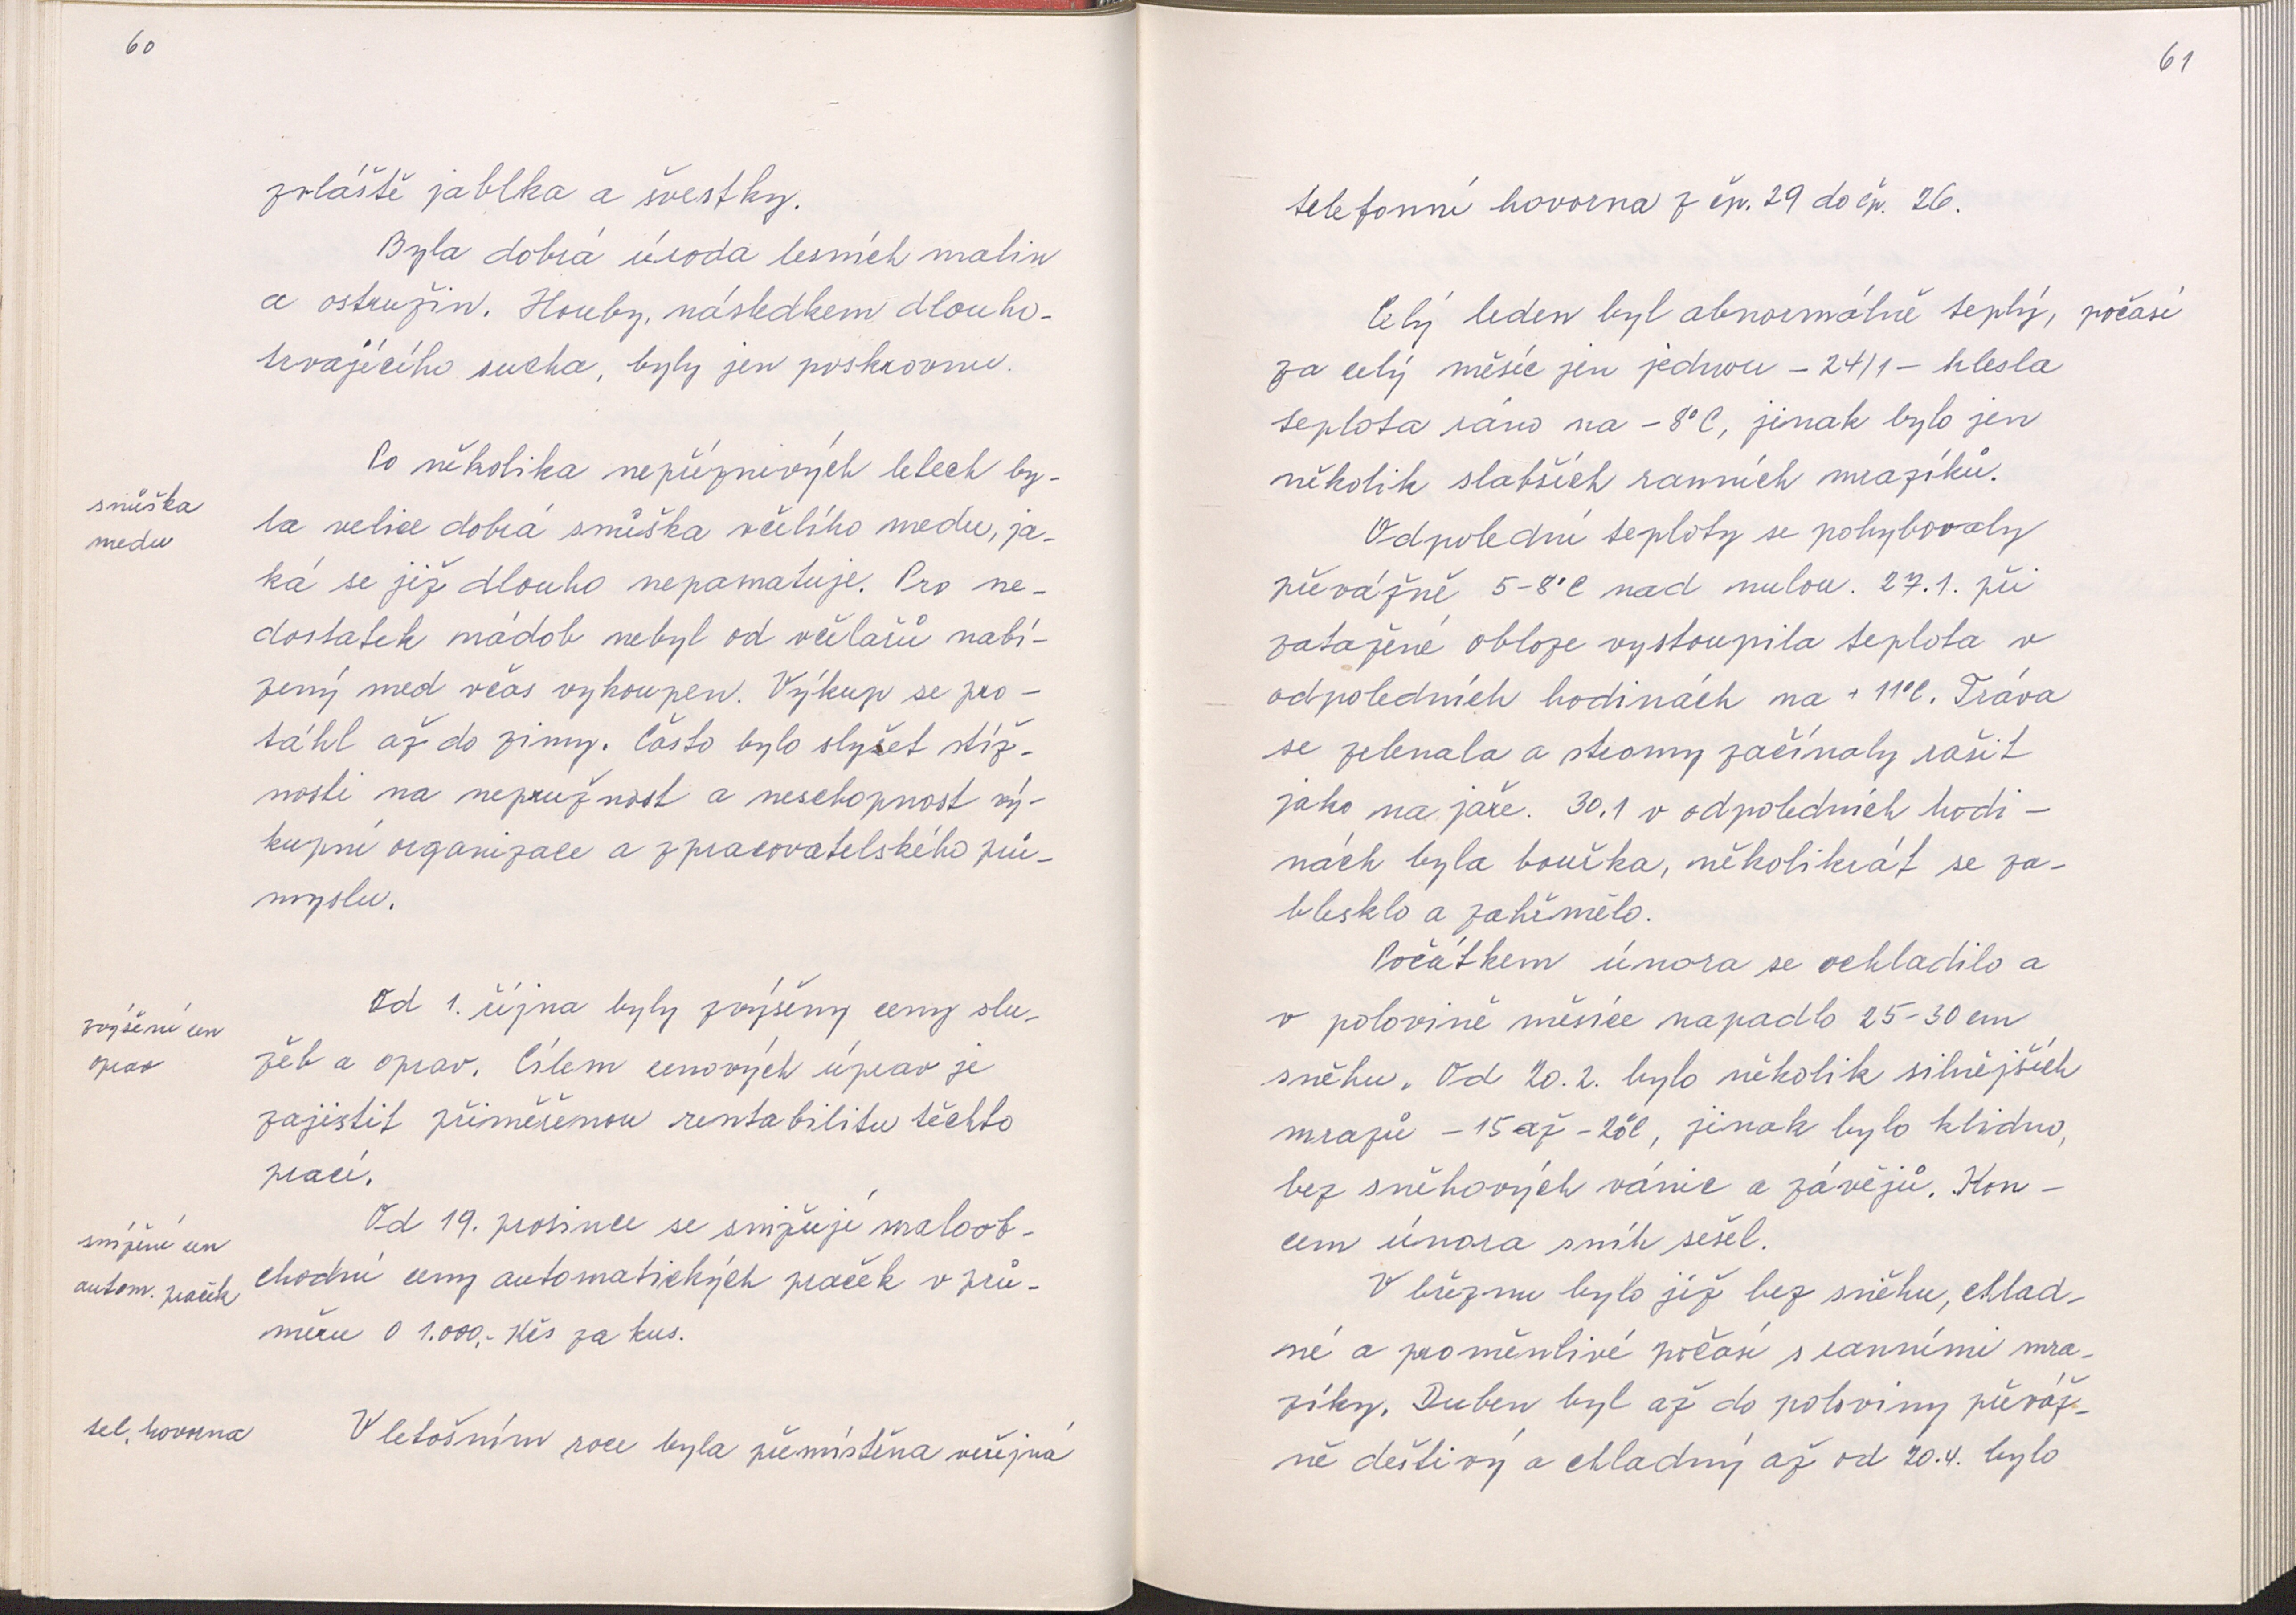 60
zvláště jablka a švestky.
Byla dobrá úroda lesních malin
a ostružin. Houby, následkem dlouho-
trvajícího sucha, byly jen poskrovnu.
Po několika nepříznivých letech by-
snůška
medu
la velice dobrá snůška včelího medu, ja-
ká se již dlouho nepamatuje. Pro ne-
dostatek nádob nebyl od včelařů nabí-
zený med včas vykoupen. Výkup se pro-
táhl až do zimy. Často bylo slyšet stíž-
nosti na nepružnost a neschopnost vý-
kupní organizace a zpracovatelského prů-
myslu.
zvýšení cen
oprav
Od 1. října byly zvýšeny ceny slu-
žeb a oprav. Cílem cenových úprav je
zajistit přiměřenou rentabilitu těchto
prací.
snížení cen
autom. praček
Od 19. prosince se snižují maloob-
chodní ceny automatických praček v prů-
měru o 1.000,- Kčs za kus.
tel. hovorna
V letošním roce byla přemístěna veřejná
61
telefonní hovorna z čp. 29 do čp. 26.
Celý leden byl abnormálně teplý,
počasí
za celý měsíc jen jednou - 24/1 - klesla
teplota ráno na -8°C, jinak bylo jen
několik slabších ranních mrazíků.
Odpolední teploty se pohybovaly
převážně 5-8°C nad nulou. 27.1. při
zatažené obloze vystoupila teplota v
odpoledních hodinách na + 11°C. Tráva
se zelenala a stromy začínaly rašit
jako na jaře. 30.1 v odpoledních hodi-
nách byla bouřka, několikrát se za-
blesklo a zahřmělo.
Počátkem února se ochladilo a
v polovině měsíce napadlo 25-30 cm
sněhu. Od 20.2. bylo několik silnějších
mrazů -15 až -20°C, jinak bylo klidno,
bez sněhových vánic a závějů. Kon-
cem února sníh sešel.
V březnu bylo již bez sněhu, chlad-
né a proměnlivé počasí s ranními mra-
zíky. Duben byl až do poloviny převáž-
ně deštivý a chladný až od 20.4. bylo